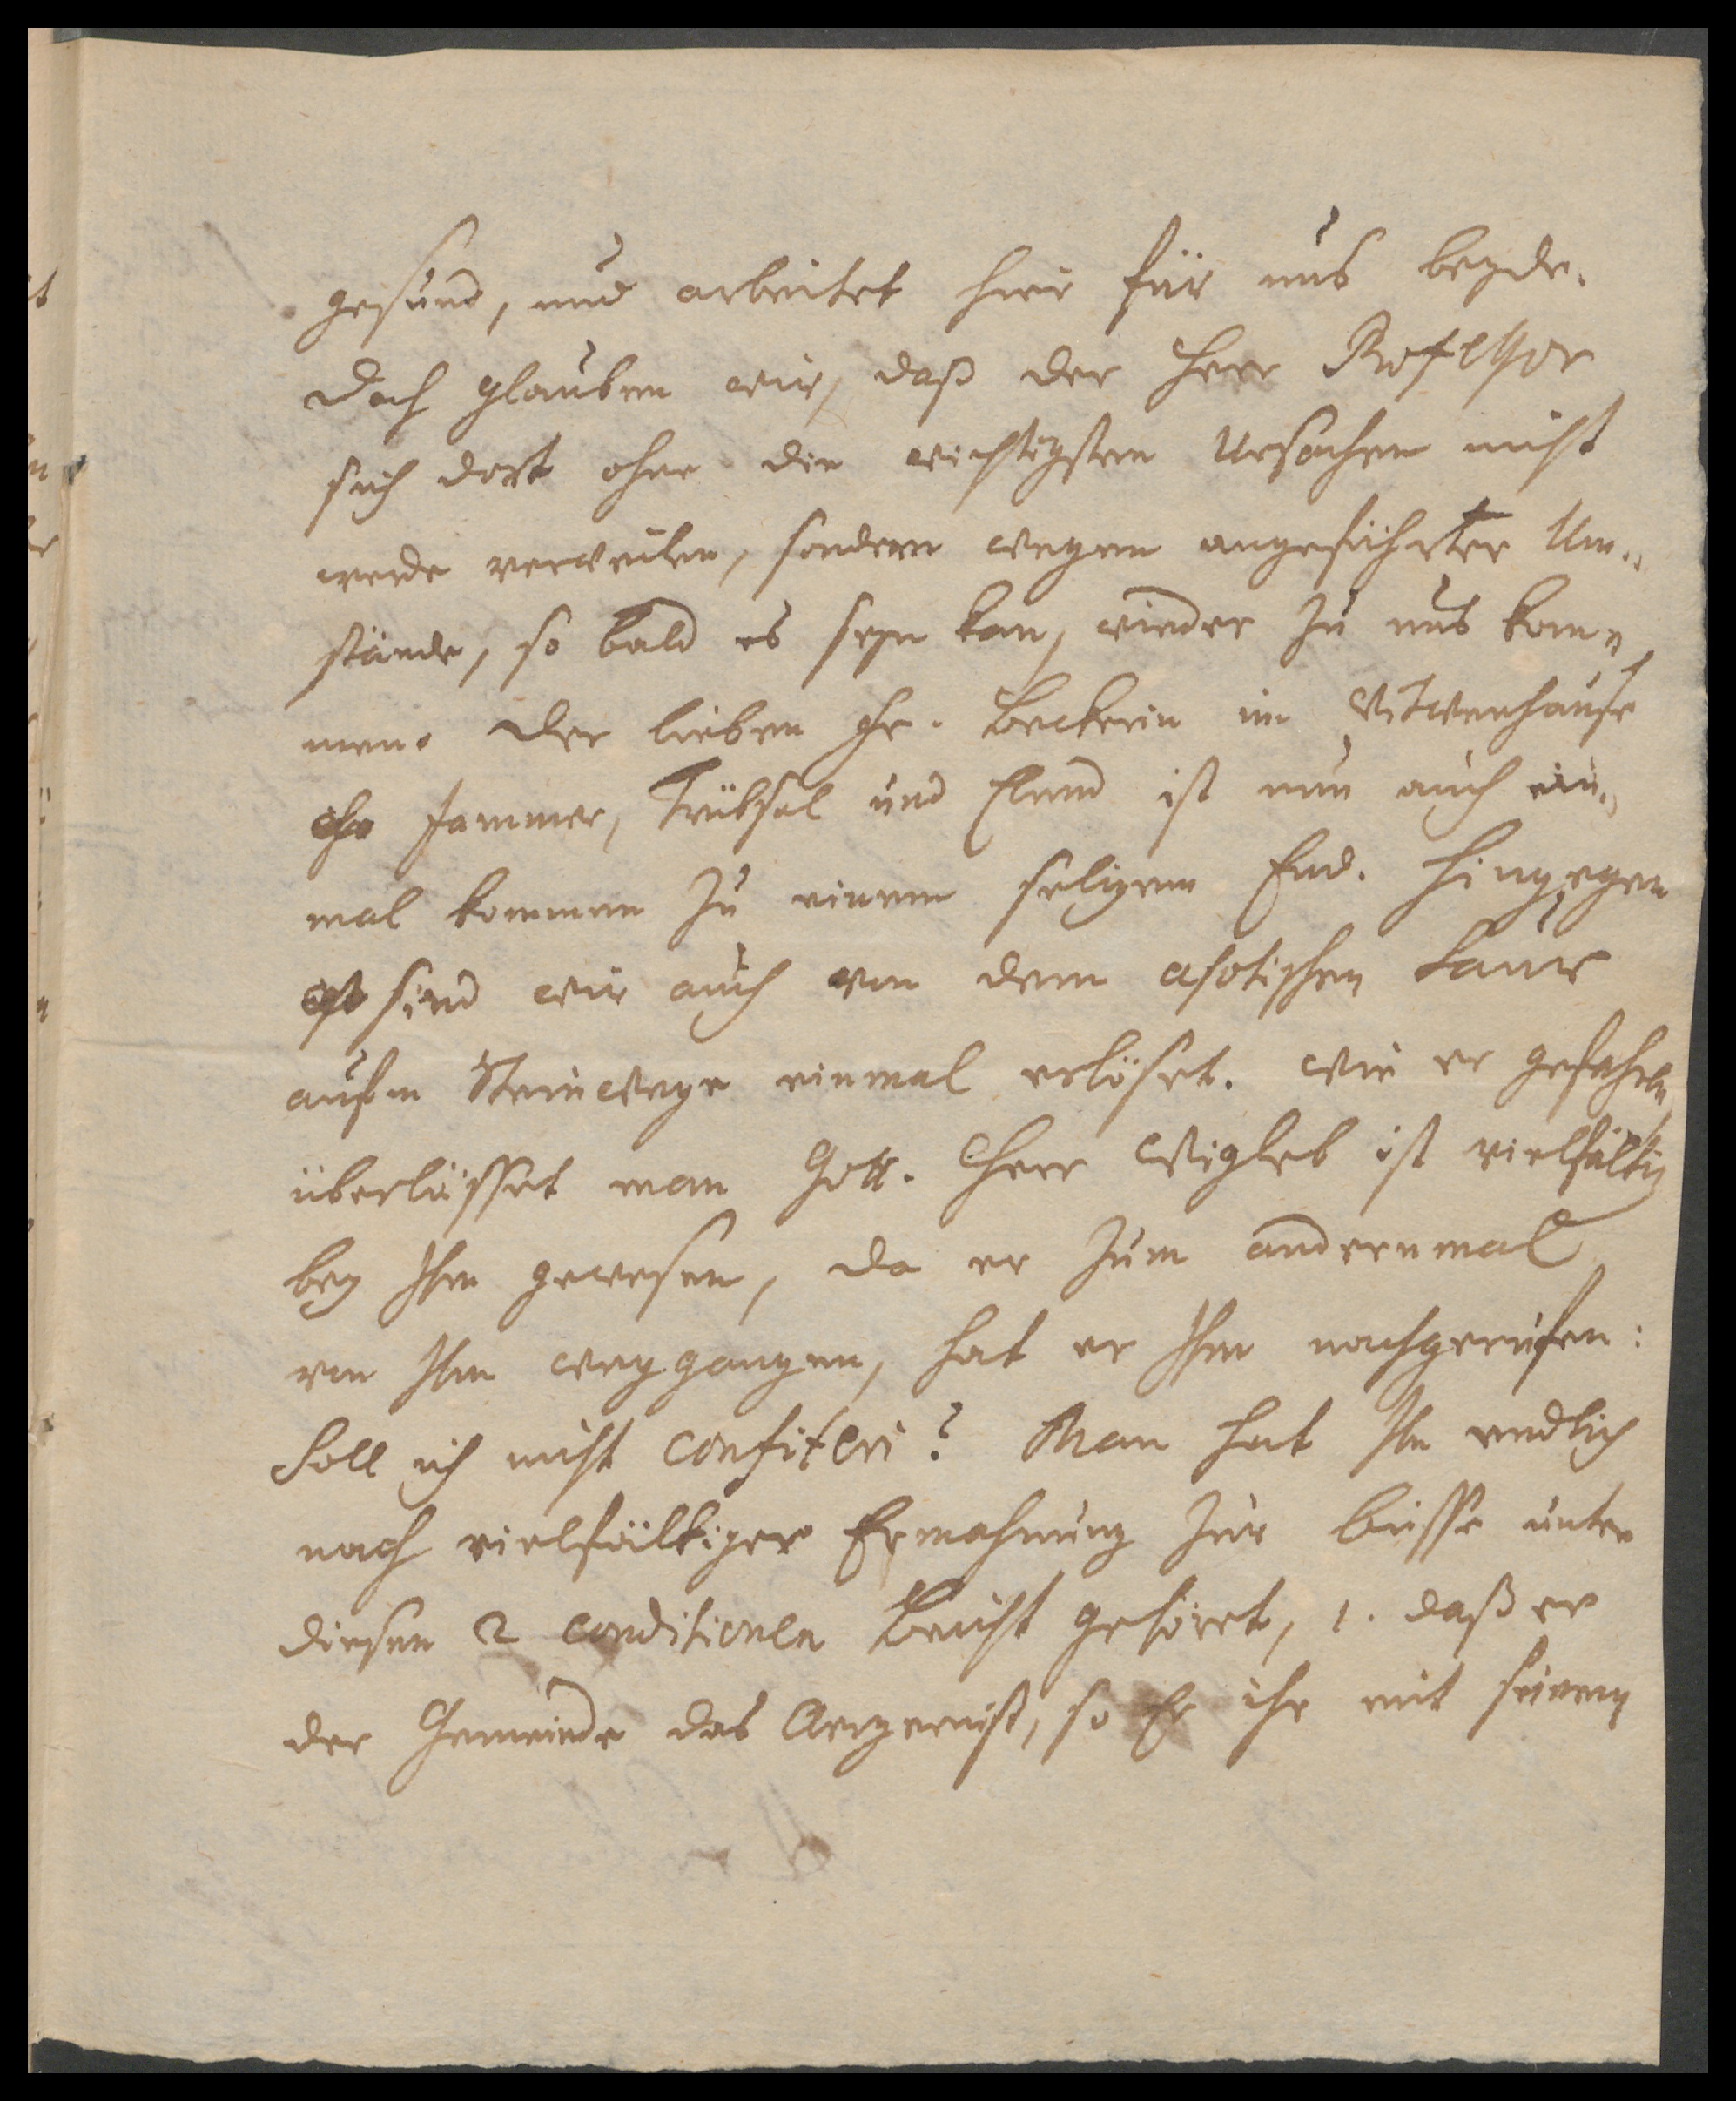 gesund, und arbeitet hier für uns beyde.
Doch glauben wir, daß der Herr Professor
sich dort ohne die wichtigsten Ursachen nicht
werde verweilen, sondern wegen angeführter Um-
stände, so bald es seyn kan, wieder zu uns kom-
men. Der lieben Fr. Beckerin im Witwenhause
ihr Jammer, Trübsal und Elend ist nun auch ein-
mal kommen zu einem seligem End. Hingegen
sind wir auch von dem asotischen
aufm Steinwege einmal erlöset. Wie er gefahren
überlässet man Gott. Herr Wigleb ist vielfältig
bey Ihm gewesen, da er zum andernmal
von Ihm weggangen, hat er Ihm nachgerufen:
Soll ich nicht confiteri? Man hat Ihn endlich
nach vielfältiger Ermahnung zur busse unter
diesen 2 conditionen Beicht gehöret, 1. daß er
der Gemeinde das Aergernist, so Er ihr mit seinem